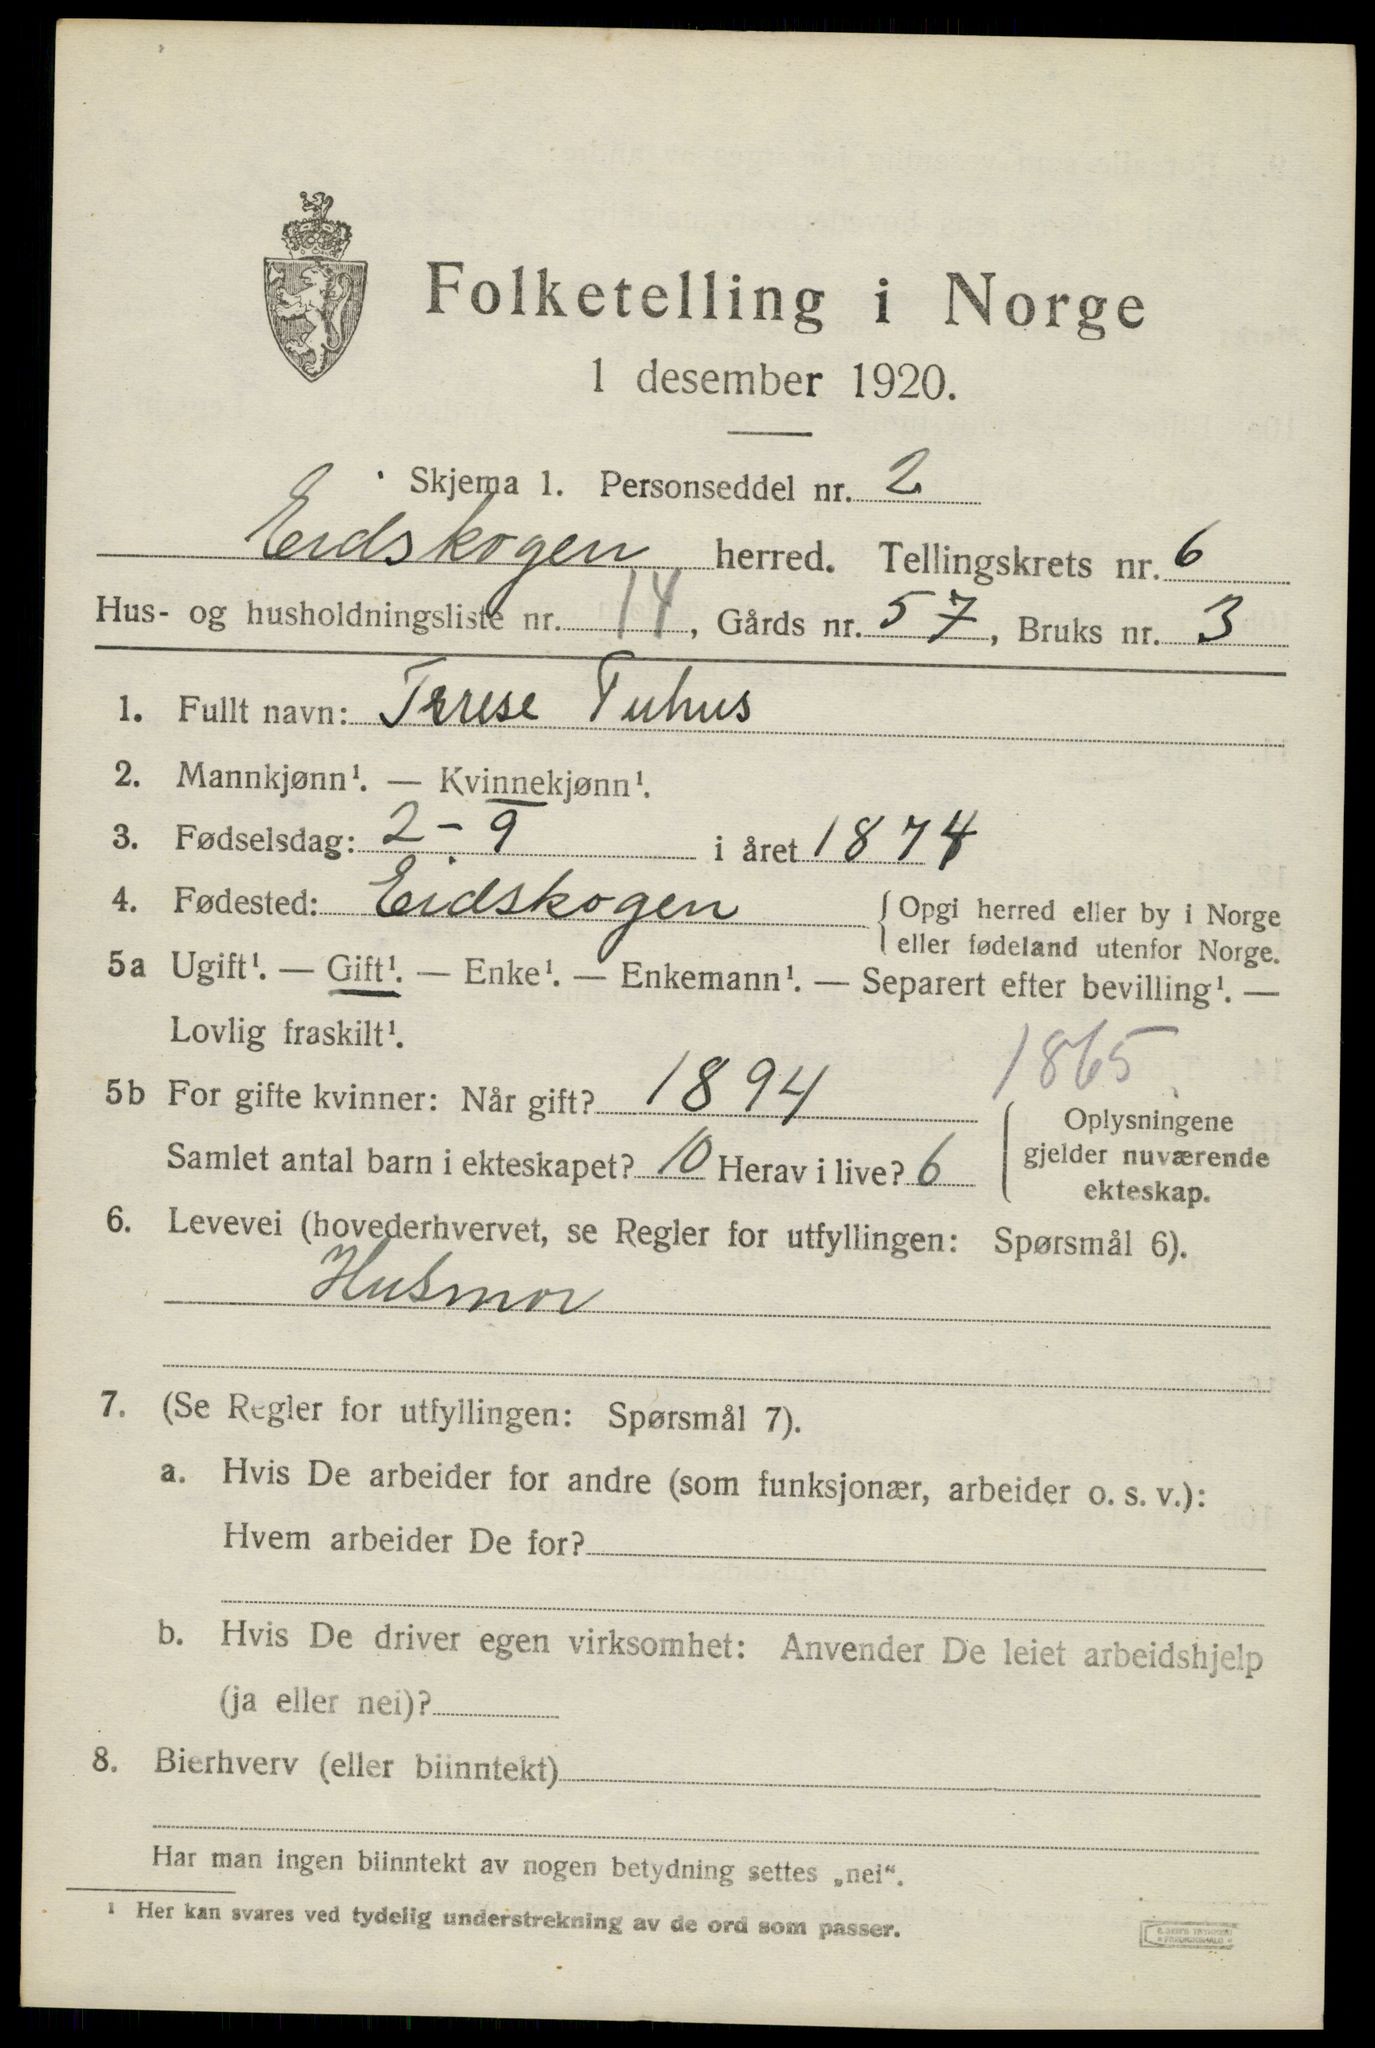 Folketelling i Norge
1 desember 1920.
Skjema 1. Personseddel nr. 2
Eidskogen herred. Tellingskrets nr. 6
Hus- og husholdningsliste nr. 14, Gårds nr. 57, Bruks nr. 3
1. Fullt navn: Terese Tuhus
2. Mannkjønn¹. — Kvinnekjønn¹.
3. Fødselsdag: 2-9 i året 1874
4. Fødested: Eidskogen { Opgi herred eller by i Norge
eller fødeland utenfor Norge.
5a Ugift¹. — Gift¹. — Enke¹. — Enkemann¹. — Separert efter bevilling¹. —
Lovlig fraskilt¹.
1865
5b For gifte kvinner: Når gift? 1894
Samlet antal barn i ekteskapet? 10 Herav i live? 6
Oplysningene
gjelder nuværende
ekteskap.
6. Levevei (hovederhvervet, se Regler for utfyllingen: Spørsmål 6).
Husmor
7. (Se Regler for utfyllingen: Spørsmål 7).
a. Hvis De arbeider for andre (som funksjonær, arbeider o. s. v.):
Hvem arbeider De for?
b. Hvis De driver egen virksomhet: Anvender De leiet arbeidshjelp
(ja eller nei)?
8. Bierhverv (eller biinntekt)
Har man ingen biinntekt av nogen betydning settes „nei“.
¹ Her kan svares ved tydelig understrekning av de ord som passer.